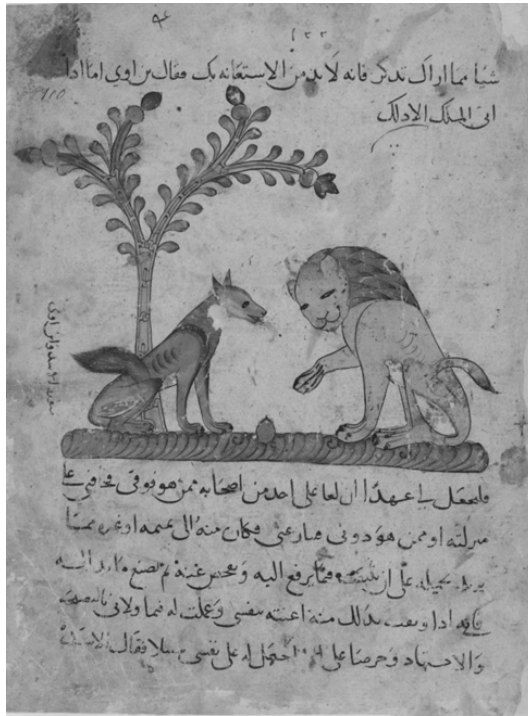 ١٢٢
شيا مما اراك تذكر فانه لا بد من الاستعانه بك فقال بن اوى اما اذا
ابى الملك الا ذلك
صورة الاسد وابن اوى
فليجعل لي عهدا ان بغا علي احد من اصحابه ممن هو فوقي مخافتي على
منزلته او ممن هو دوني فكان منه او غيره
على فيما يرفع اليه ويفحص عنه ثم يصنع ما بدا له
اذا وثقت بذلك منه اعنته بنفسي وعملت له فيما ولاني بالنصيحة
والاجتهاد وحرصا على اجعل له على نفسي سبيلا فقال الاسد